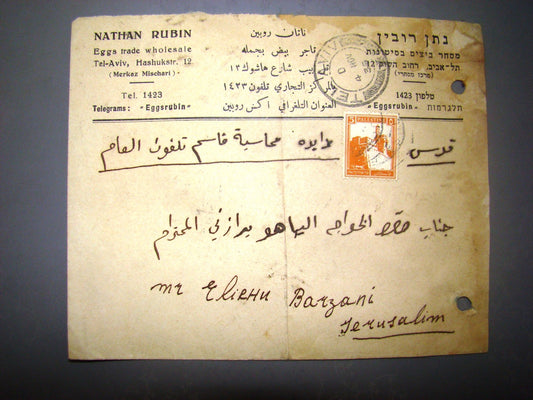 NATHAN RUBIN
Eggs trade wholesale
Tel-Aviv, Hashukstr. 12
(Merkaz Mischari)
Tel. 1423
Telegrams: "Eggsrubin"
ناتان روبين
تاجر بيض بجمله
تل ابيب شارع هاشوك ١٢
المركز التجاري تلفون ١٤٢٣
العنوان التلغرافي اكس روبين
נתן רובין
מסחר ביצים בסיטונות
תל-אביב, רחוב השוק 12
(מרכז מסחרי)
טלפון 1423
תלגרמות "Eggsrubin"
TEL AVIV
5 PALESTINE 5
قدس
محاسبة قاسم تلفون العام
جناب
الخواجه الياهو برازني المحترم
mr Eliehu Barzani
Jerusalim